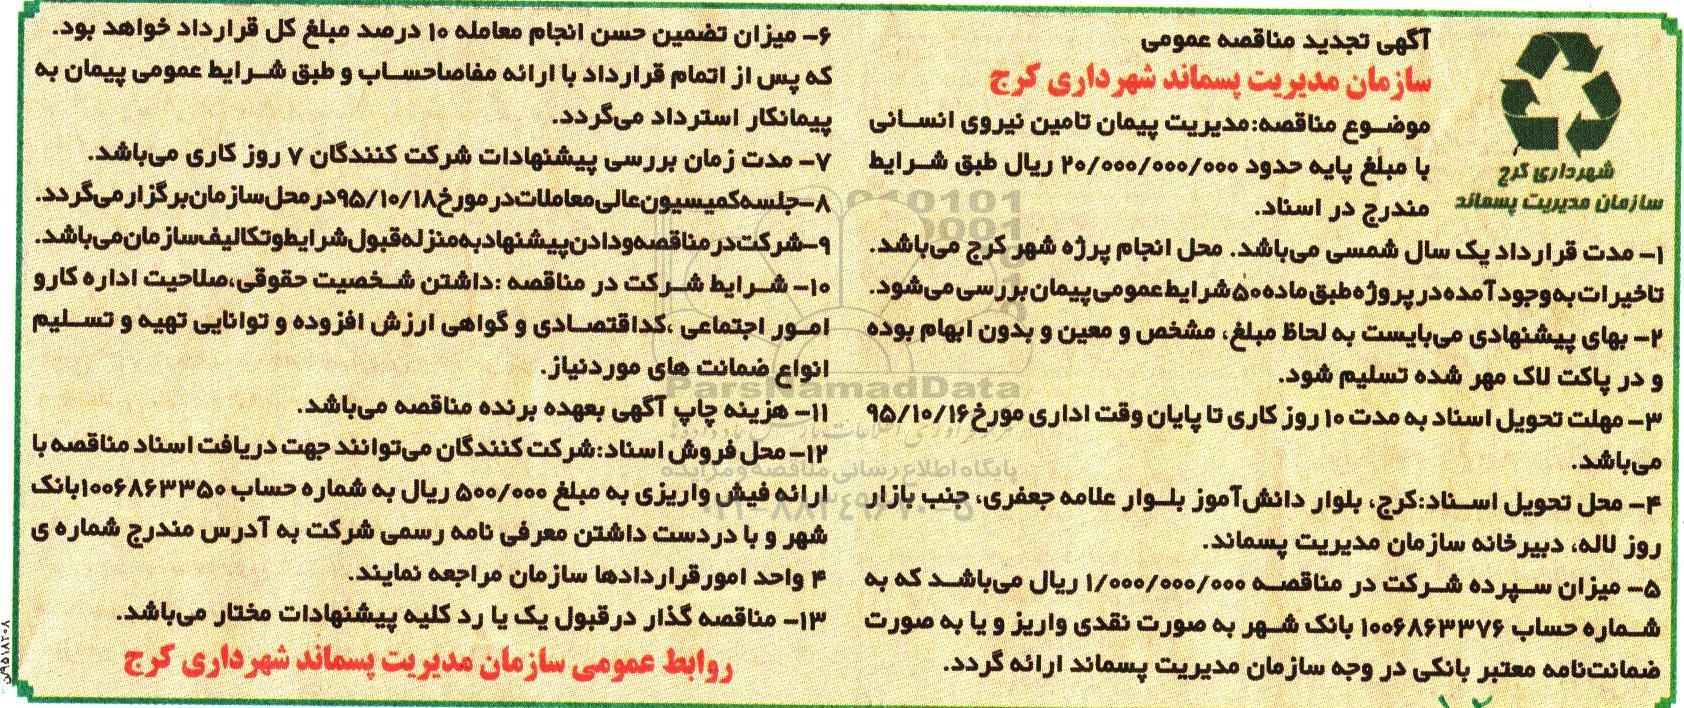 آگهی تجدید مناقصه عمومی
سازمان مدیریت پسماند شهرداری کرج
شهرداری کرج
سازمان مدیریت پسماند
موضوع مناقصه:مدیریت پیمان تامین نیروی انسانی
با مبلغ پایه حدود ۲۰/۰۰۰/۰۰۰/۰۰۰ ریال طبق شرایط
مندرج در اسناد.
۱- مدت قرارداد یک سال شمسی می‌باشد. محل انجام پرژه شهر کرج می‌باشد.
تاخیرات به‌وجود آمده در پروژه طبق ماده ۵۰ شرایط عمومی پیمان بررسی می‌شود.
۲- بهای پیشنهادی می‌بایست به لحاظ مبلغ، مشخص و معین و بدون ابهام بوده
و در پاکت لاک مهر شده تسلیم شود.
۳- مهلت تحویل اسناد به مدت ۱۰ روز کاری تا پایان وقت اداری مورخ ۹۵/۱۰/۱۶
می‌باشد.
۴- محل تحویل اسناد:کرج، بلوار دانش‌آموز بلوار علامه جعفری، جنب بازار
روز لاله، دبیرخانه سازمان مدیریت پسماند.
۵- میزان سپرده شرکت در مناقصه ۱/۰۰۰/۰۰۰/۰۰۰ ریال می‌باشد که به
شماره حساب ۱۰۰۶۸۶۳۳۷۶ بانک شهر به صورت نقدی واریز و یا به صورت
ضمانت‌نامه معتبر بانکی در وجه سازمان مدیریت پسماند ارائه گردد.
۶- میزان تضمین حسن انجام معامله ۱۰ درصد مبلغ کل قرارداد خواهد بود.
که پس از اتمام قرارداد با ارائه مفاصاحساب و طبق شرایط عمومی پیمان به
پیمانکار استرداد می‌گردد.
۷- مدت زمان بررسی پیشنهادات شرکت کنندگان ۷ روز کاری می‌باشد.
۸-جلسه کمیسیون عالی معاملات در مورخ ۹۵/۱۰/۱۸ در محل سازمان برگزار می‌گردد.
۹-شرکت در مناقصه و دادن پیشنهاد به منزله قبول شرایط و تکالیف سازمان می‌باشد.
۱۰- شرایط شرکت در مناقصه :داشتن شخصیت حقوقی،صلاحیت اداره کار و
امور اجتماعی ،کداقتصادی و گواهی ارزش افزوده و توانایی تهیه و تسلیم
انواع ضمانت های موردنیاز.
۱۱- هزینه چاپ آگهی بعهده برنده مناقصه می‌باشد.
۱۲- محل فروش اسناد:شرکت کنندگان می‌توانند جهت دریافت اسناد مناقصه با
ارائه فیش واریزی به مبلغ ۵۰۰/۰۰۰ ریال به شماره حساب ۱۰۰۶۸۶۳۳۵۰بانک
شهر و با دردست داشتن معرفی نامه رسمی شرکت به آدرس مندرج شماره ی
۴ واحد امورقراردادها سازمان مراجعه نمایند.
۱۳- مناقصه گذار درقبول یک یا رد کلیه پیشنهادات مختار می‌باشد.
روابط عمومی سازمان مدیریت پسماند شهرداری کرج
ParsNamadData
پایگاه اطلاع رسانی مناقصه و مزایده